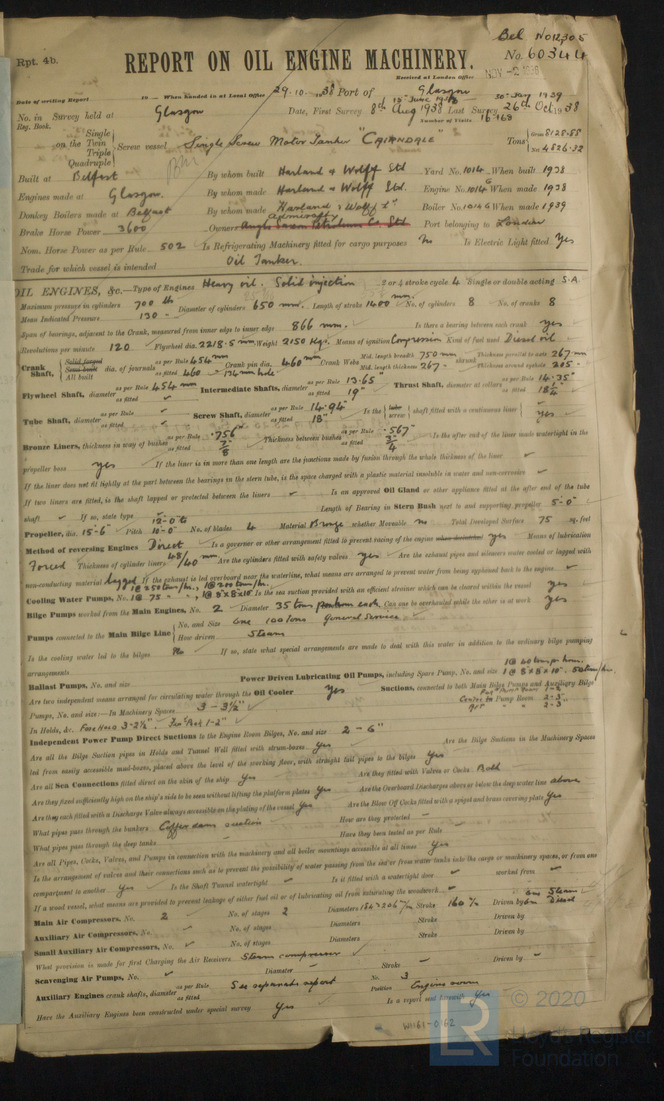 Bel No 12,305
Rpt. 4b.
REPORT ON OIL ENGINE MACHINERY.
No. 60344
Received at London Office NOV -2 1938
Date of writing Report 19 When handed in at Local Office 29.10.1938 Port of Glasgow
No. in Survey held at Glasgow Date, First Survey 8th Aug 1938 Last Survey 26th Oct 1938
Reg. Book. Number of Visits
Single
on the Twin
Triple
Quadruple
Screw vessel Single Screw Motor Tanker "CAIRNDALE" Tons Gross 8128.88 Net 4826.32
Built at Belfast By whom built Harland & Wolff Ltd Yard No. 1014 When built 1938
Engines made at Glasgow. By whom made Harland & Wolff Ltd. Engine No. 1014 G When made 1938
Donkey Boilers made at Belfast By whom made Harland & Wolff Ltd Boiler No. 1014 G When made 1939
Brake Horse Power 3600 Owners Anglo Saxon Petroleum Co Ltd Admiralty Port belonging to London
Nom. Horse Power as per Rule 502 Is Refrigerating Machinery fitted for cargo purposes No Is Electric Light fitted Yes
Trade for which vessel is intended Oil Tanker.
OIL ENGINES, &c. Type of Engines Heavy oil. Solid injection 2 or 4 stroke cycle 4 Single or double acting S.A.
Maximum pressure in cylinders 700 lb Diameter of cylinders 650 mm. Length of stroke 1400 mm. No. of cylinders 8 No. of cranks 8
Mean Indicated Pressure 130
Span of bearings, adjacent to the Crank, measured from inner edge to inner edge 866 mm. Is there a bearing between each crank yes
Revolutions per minute 120 Flywheel dia. 2218.5 mm Weight 2150 Kgs. Means of ignition Compression Kind of fuel used Diesel oil
Crank Shaft, Solid forged Semi built All built dia. of journals as per Rule 454 mm as fitted 460 Crank pin dia. 460 mm Crank Webs Mid. length breadth 750 mm Mid. length thickness 267 shrunk Thickness parallel to axis 267 mm Thickness around eyehole 205
Flywheel Shaft, diameter as per Rule 454 mm as fitted Intermediate Shafts, diameter as per Rule 13.65" as fitted 19" Thrust Shaft, diameter at collars as per Rule 14.35" as fitted
Tube Shaft, diameter as per Rule as fitted Screw Shaft, diameter as per Rule 14.94" as fitted 18" Is the tube screw shaft fitted with a continuous liner yes
Bronze Liners, thickness in way of bushes as per Rule .756" as fitted 7/8 Thickness between bushes as per Rule .567" as fitted 3/4 Is the after end of the liner made watertight in the
propeller boss yes If the liner is in more than one length are the junctions made by fusion through the whole thickness of the liner
If the liner does not fit tightly at the part between the bearings in the stern tube, is the space charged with a plastic material insoluble in water and non-corrosive
If two liners are fitted, is the shaft lapped or protected between the liners Is an approved Oil Gland or other appliance fitted at the after end of the tube
shaft If so, state type Length of Bearing in Stern Bush next to and supporting propeller 5-0"
Propeller, dia. 15-6" Pitch 12-0 to 10-0" No. of blades 4 Material Bronze whether Moveable no Total Developed Surface 75 sq. feet
Method of reversing Engines Direct Is a governor or other arrangement fitted to prevent racing of the engine when declutched yes Means of lubrication
Forced Thickness of cylinder liners 48/40 mm Are the cylinders fitted with safety valves yes Are the exhaust pipes and silencers water cooled or lagged with
non-conducting material lagged If the exhaust is led overboard near the waterline, what means are arranged to prevent water from being syphoned back to the engine
Cooling Water Pumps, No. 1 @ 350 tons/hr., 1 @ 200 tons/hr. 1 @ 75 1 @ 8 x 8 x 10" Is the sea suction provided with an efficient strainer which can be cleared within the vessel yes
Bilge Pumps worked from the Main Engines, No. 2 Diameter 35 tons per hour each Can one be overhauled while the other is at work yes
Pumps connected to the Main Bilge Line No. and Size One 100 tons General Service
How driven Steam
Is the cooling water led to the bilges No If so, state what special arrangements are made to deal with this water in addition to the ordinary bilge pumping
arrangements
Ballast Pumps, No. and size Power Driven Lubricating Oil Pumps, including Spare Pump, No. and size 1 @ 60 tons per hour. 1 @ 8" x 8" x 10". 50 tons/hr
Are two independent means arranged for circulating water through the Oil Cooler Yes Suctions, connected to both Main Bilge Pumps and Auxiliary Bilge
Pumps, No. and size:—In Machinery Spaces 3 - 3½" Pump Room 2 - 3"
In Holds, &c. Fore Hold 3 - 2½".
Independent Power Pump Direct Suctions to the Engine Room Bilges, No. and size 2 - 6"
Are all the Bilge Suction pipes in Holds and Tunnel Well fitted with strum-boxes Yes Are the Bilge Suctions in the Machinery Space
led from easily accessible mud-boxes, placed above the level of the working floor, with straight tail pipes to the bilges Yes
Are all Sea Connections fitted direct on the skin of the ship Yes Are they fitted with Valves or Cocks Both
Are they fixed sufficiently high on the ship's side to be seen without lifting the platform plates Yes Are the Overboard Discharges above or below the deep water line above
Are they each fitted with a Discharge Valve always accessible on the plating of the vessel Yes Are the Blow Off Cocks fitted with a spigot and brass covering plate Yes
What pipes pass through the bunkers Cofferdam suction How are they protected
What pipes pass through the deep tanks Have they been tested as per Rule
Are all Pipes, Cocks, Valves, and Pumps in connection with the machinery and all boiler mountings accessible at all times Yes
Is the arrangement of valves and their connections such as to prevent the possibility of water passing from the sea or from water tanks into the cargo or machinery spaces, or from one
compartment to another Yes Is the Shaft Tunnel watertight Is it fitted with a watertight door worked from
If a wood vessel, what means are provided to prevent leakage of either fuel oil or of lubricating oil from saturating the woodwork
Main Air Compressors, No. 2 No. of stages 2 Diameters Stroke 160 m/m Driven by one Steam one Diesel
Auxiliary Air Compressors, No. No. of stages Diameters Stroke Driven by
Small Auxiliary Air Compressors, No. No. of stages Diameters Stroke Driven by
What provision is made for first Charging the Air Receivers Steam compressor
Scavenging Air Pumps, No. Diameter Stroke Driven by
Auxiliary Engines crank shafts, diameter as per Rule as fitted See separate report No. 3 Position Engine room
Have the Auxiliary Engines been constructed under special survey Yes Is a report sent herewith Yes
W1161-0162
© 2020
LR Lloyd's Register
Foundation